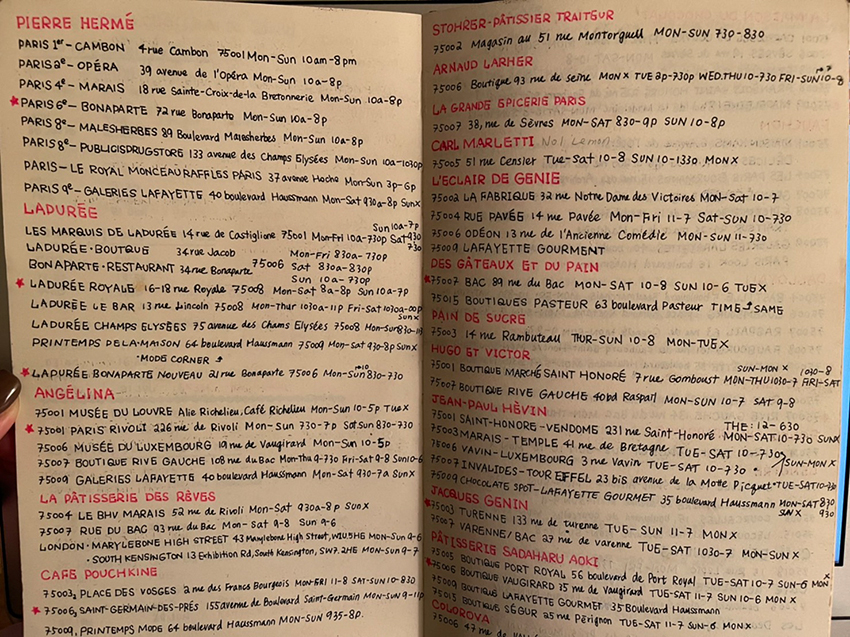 PIERRE HERMÉ
PARIS 1er – CAMBON 4 rue Cambon 75001 Mon-Sun 10am-8pm
PARIS 2e – OPÉRA 39 avenue de l'Opéra Mon-Sun 10a-8p
PARIS 4e – MARAIS 18 rue Sainte-Croix-de-la Bretonnerie Mon-Sun 10a-8p
★ PARIS 6e – BONAPARTE 72 rue Bonaparte Mon-Sun 10a-8p
PARIS 8e – MALESHERBES 89 Boulevard Malesherbes Mon-Sun 10a-8p
PARIS 8e – PUBLICISDRUGSTORE 133 avenue des Champs Elysées Mon-Sun 10a-1030p
PARIS – LE ROYAL MONCEAU RAFFLES PARIS 37 avenue Hoche Mon-Sun 3p-6p
PARIS 9e – GALERIES LAFAYETTE 40 boulevard Haussmann Mon-Sat 930a-8p Sun x
LADURÉE
Sun 10a-7p
LES MARQUIS DE LADURÉE 14 rue de Castiglione 75001 Mon-Fri 10a-730p Sat 930
730
LADURÉE・BOUTQUE 34 rue Jacob Mon-Fri 830a-730p
BONAPARTE・RESTAURANT 34 rue Bonaparte 75006 Sat 830a-830p
Sun 10a-730p
★ LADURÉE ROYALE 16-18 rue Royale 75008 Mon-Sat 8a-8p Sun 10a-7p
LADURÉE LE BAR 13 rue Lincoln 75008 Mon-Thur 1030a-11p Fri-Sat 1030a-00p
Sun x
LADURÉE CHAMPS ELYSÉES 75 avenue des Chams Elysées 75008 Mon-Sun 830-
PRINTEMPS DE LA MAISON 64 boulevard Haussmann 75009 Mon-Sat 930-8p Sun x
・MODE CORNER
★ LADURÉE BONAPARTE NOUVEAU 21 rue Bonaparte 75006 Mon-Sun 830-730
ANGÉLINA
75001 MUSÉE DU LOUVRE Alie Richelieu, Café Richelieu Mon-Sun 10-5p Tue x
★ 75001 PARIS RIVOLI 226 rue de Rivoli Mon-Sun 730-7p Sat.Sun 830-730
75006 MUSÉE DU LUXEMBOURG 19 rue de Vaugirard Mon-Sun 10-5p
75007 BOUTIQUE RIVE GAUCHE 108 rue du Bac Mon-Thu 9-730 Fri-Sat 9-8 Sun 10-6
75009 GALERIES LAFAYETTE 40 boulevard Haussmann Mon-Sat 930-7a Sun x
LA PÂTISSERIE DES RÊVES
75004 LE BHV MARAIS 52 rue de Rivoli Mon-Sat 930a-8p Sun x
75007 RUE DU BAC 93 rue du Bac Mon-Sat 9-8 Sun 9-6
LONDON・MARYLEBONE HIGH STREET 43 Marylebone High Street, W1U.5HE Mon-Sun 9-6
・SOUTH KENSINGTON 13 Exhibition Rd, South Kensington, SW7.2HE Mon-Sun 9-7
CAFÉ POUCHKINE
75003, PLACE DES VOSGES 2 rue des Francs Bourgeois MON-FRI 11-8 SAT-SUN 10-830
★ 75006, SAINT-GERMAIN-DES-PRÉS 155 avenue de Boulevard Saint-Germain MON-SUN 9-11p
75009, PRINTEMPS MODE 64 boulevard Haussmann MON-SUN 935-8p.
STOHRER-PÂTISSIER TRAITEUR
75002 Magasin au 51 rue Montorguell MON-SUN 730-830
ARNAUD LARHER
75006 Boutique 93 rue de seine MON x TUE 3p-730p WED.THU 10-730 FRI-SUN 10-8
LA GRANDE EPICERIE PARIS
75007 38, rue de Sèvres MON-SAT 830-9p SUN 10-8p
CARL MARLETTI No1 Lemon
75005 51 rue Censier Tue-Sat 10-8 SUN 10-1330 MON x
L'ECLAIR DE GENIE
75002 LA FABRIQUE 32 rue Notre Dame des Victoires MON-Sat 10-7
75004 RUE PAVÉE 14 rue Pavée Mon-Fri 11-7 Sat-SUN 10-730
75006 ODÉON 13 rue de l'Ancienne Comédie MON-SUN 11-730
75009 LAFAYETTE GOURMENT
DES GÂTEAUX ET DU PAIN
★ 75007 BAC 89 rue du Bac MON-SUN 10-8 SUN 10-6 TUE x
75015 BOUTIQUES PASTEUR 63 boulevard Pasteur TIME SAME
PAIN DE SUCRE
75003 14 rue Rambuteau THUR-SUN 10-8 MON-TUE x
HUGO ET VICTOR
SUN-MON x 1030-8
75001 BOUTIQUE MARCHÉ SAINT HONORÉ 7 rue Gomboust MON-THU 1030-7 FRI-SAT
75007 BOUTIQUE RIVE GAUCHE 40 bd Raspail MON-SUN 10-7 SAT 9-8
JEAN-PAUL HÉVIN
THE: 12-630
75001 SAINT-HONORE-VENDOME 231 rue Saint-Honoré MON-SAT 10-730 SUN x
75003 MARAIS-TEMPLE 41 rue de Bretagne TUE-SAT 10-730
75006 VAVIN-LUXEMBOURG 3 rue Vavin TUE-SAT 10-730 SUN-MON x
75007 INVALIDES-TOUR EFFEL 23 bis avenue de la Motte Picquet TUE-SAT 10-730
75009 CHOCOLATE SPOT-LAFAYETTE GOURMET 35 boulevard Haussmann MON-SAT 830
SUN x 930
JACQUES GENIN
★ 75003 TURENNE 133 rue de turenne TUE-SUN 11-7 MON x
75007 VARENNE/BAC 27 rue de varenne TUE-SAT 1030-7 MON-SUN x
PÂTISSERIE SADAHARU AOKI
75005 BOUTIQUE PORT ROYAL 56 boulevard de Port Royal TUE-SAT 10-7 SUN-6 MON x
★ 75006 BOUTIQUE VAUGIRARD 35 rue de Vaugirard TUE-SAT 11-7 SUN 10-6 MON x
75009 BOUTIQUE LAFAYETTE GOURMET 35 Boulevard Haussmann
75015 BOUTIQUE SÉGUR 25 rue Pérignon TUE-SAT 11-7 SUN
COLOROVA
75006 47 rue de